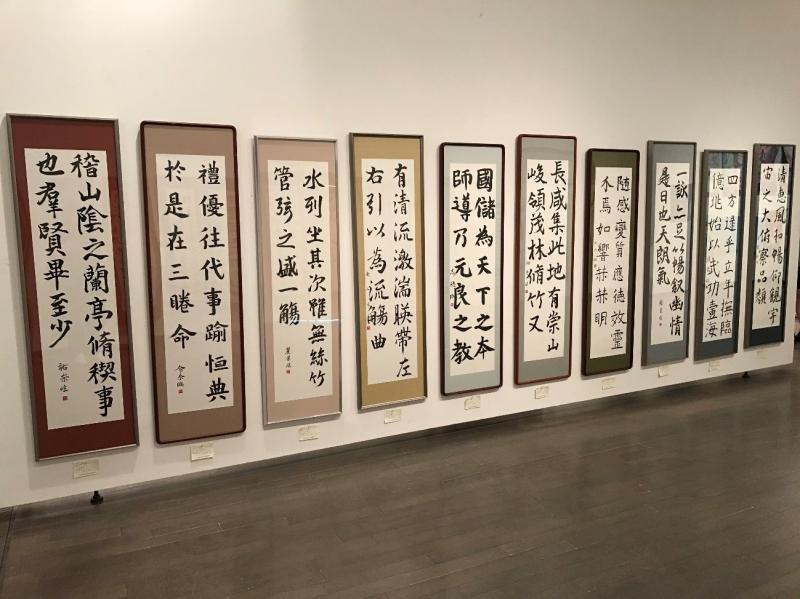 稽山陰之蘭亭脩稧事
也羣賢畢至少
禮優往代事踰恒典
於是在三睠命
水列坐其次雖無絲竹
管弦之盛一觴
有清流激湍暎帶左
右引以為流觴曲
國儲為天下之本
師導乃元良之教
長咸集此地有崇山
峻領茂林脩竹又
隨感變質應德效靈
不焉如響赫赫明
一詠亦足以暢叙幽情
是日也天朗氣
四方逮乎立年撫臨
億兆始以武功壹海
清惠風和暢仰觀宇
宙之大俯察品類